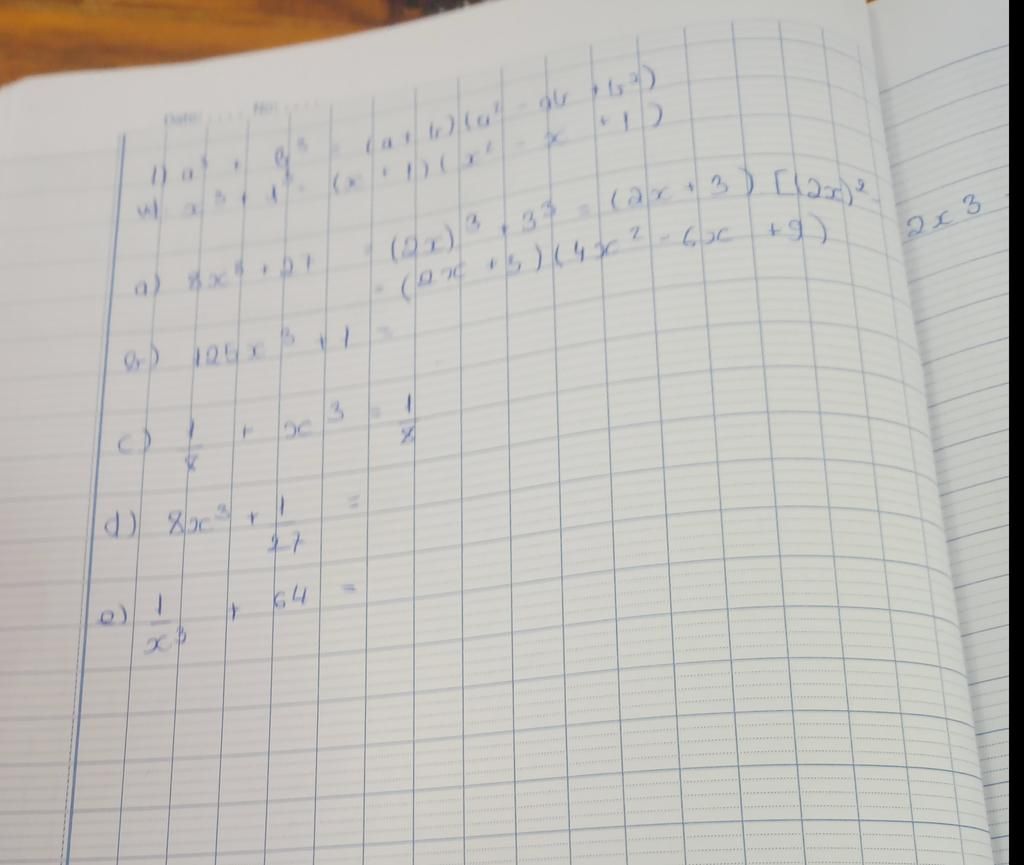 Date: .... No: ....
1) a³ + b³ = (a + b)(a² - ab + b²)
x³ + 1³ = (x + 1)(x² - x + 1)
a) 8x³ + 27 = (2x)³ + 3³ = (2x + 3) [(2x)²- 2x3
= (2x + 3)(4x² - 6x + 9)
b) 125x³ + 1 =
c) 1/8 + x³ = 1/8
d) 8x³ + 1/27 =
e) 1/x³ + 64 =